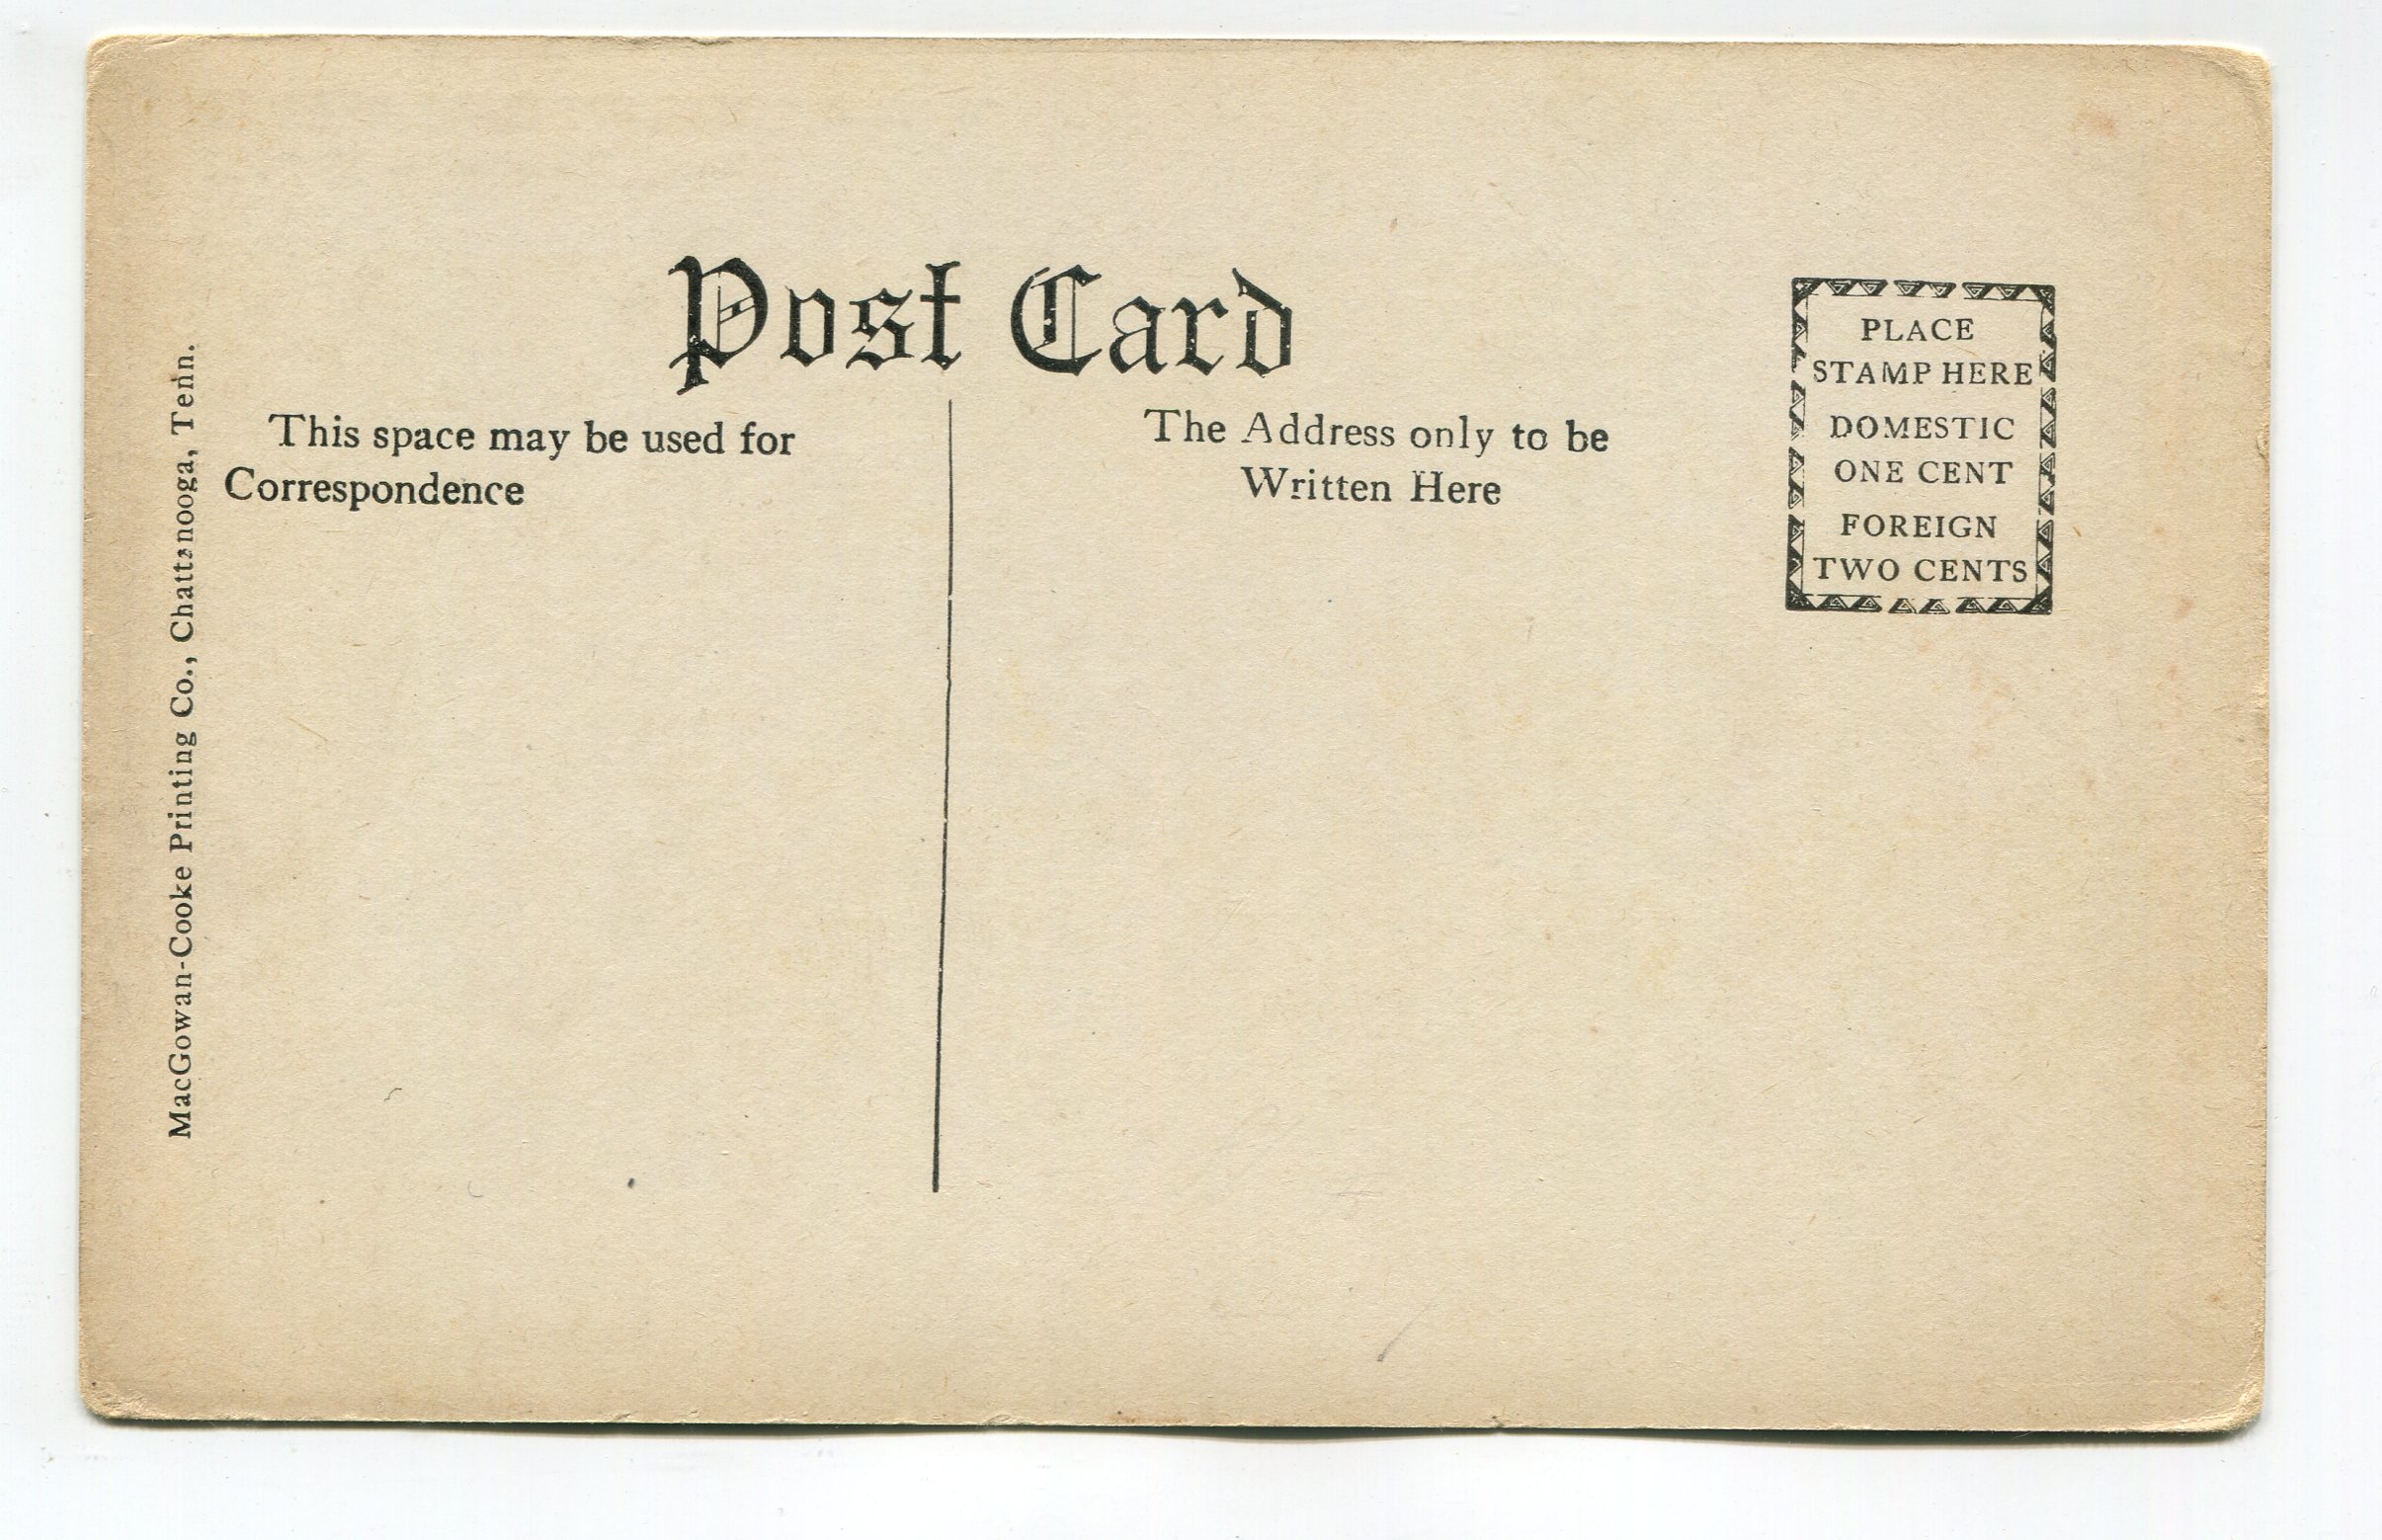 Post Card
This space may be used for
Correspondence
The Address only to be
Written Here
PLACE
STAMP HERE
DOMESTIC
ONE CENT
FOREIGN
TWO CENTS
MacGowan-Cooke Printing Co., Chattanooga, Tenn.